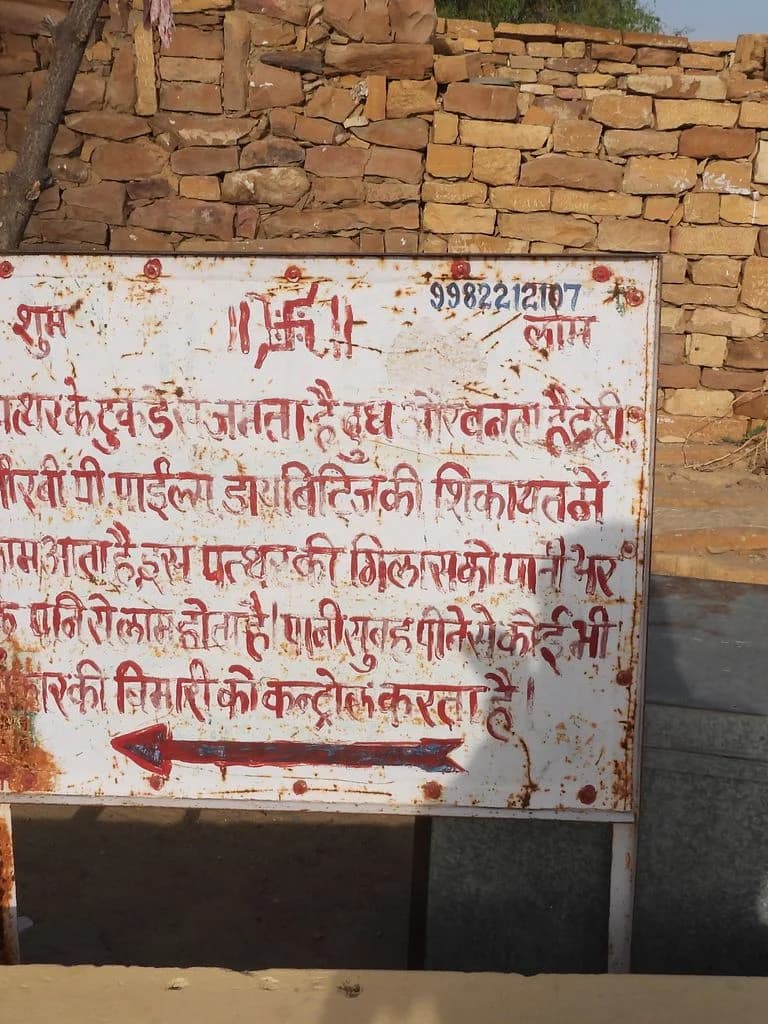 9982212107
शुभ ॥卐॥ लाभ
पत्थर के टुकडे से जमता है दुध और बनता है दही।
बी पी पाईल्स डायबिटिज की शिकायत में
काम आता है, इस पत्थर की गिलास को पानी भर
के पनि से लाभ होता है। पानी सुबह पीने से कोई भी
की बिमारी को कन्ट्रोल करता है।